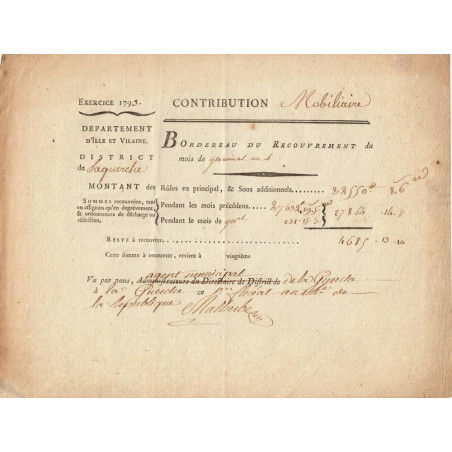 EXERCICE 1793.
CONTRIBUTION Mobiliaire
DÉPARTEMENT
D'ILLE ET VILAINE.
DISTRICT
de Laguerche
BORDEREAU DU RECOUVREMENT du
mois de germinal an 4
MONTANT des Rôles en principal, & Sous additionnels.
SOMMES recouvrées, tant
en assignats qu'en dégrèvement,
& ordonnances de décharge ou
réduction.
Pendant les mois précédens.
Pendant le mois de
RESTE à recouvrer 4685 - 13 - 10
Cette somme à recouvrer, revient à vingtième
agent municipal
Vu par nous, Administrateurs du Directoire de District de de la Guerche
à la Guerche
la République